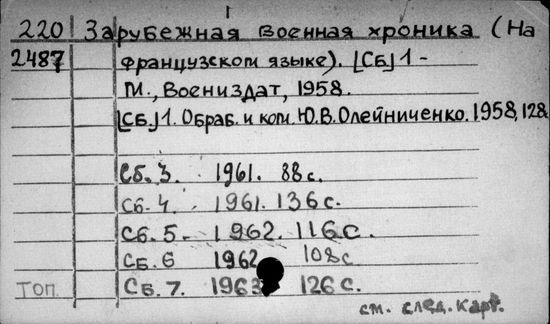 220 Зарубежная военная хроника (На
2487 французском языке). [Сб.] 1 -
М., Воениздат, 1958.
[Сб.] 1. Обраб. и ком. Ю.В. Олейниченко. 1958, 128
Сб. 3. 1961. 88 с.
Сб. 4. 1961. 136 с.
Сб. 5. 1962. 116 с.
Сб. 6 1962 108 с
Топ. Сб. 7. 1963 126 с.
см. след. карт.